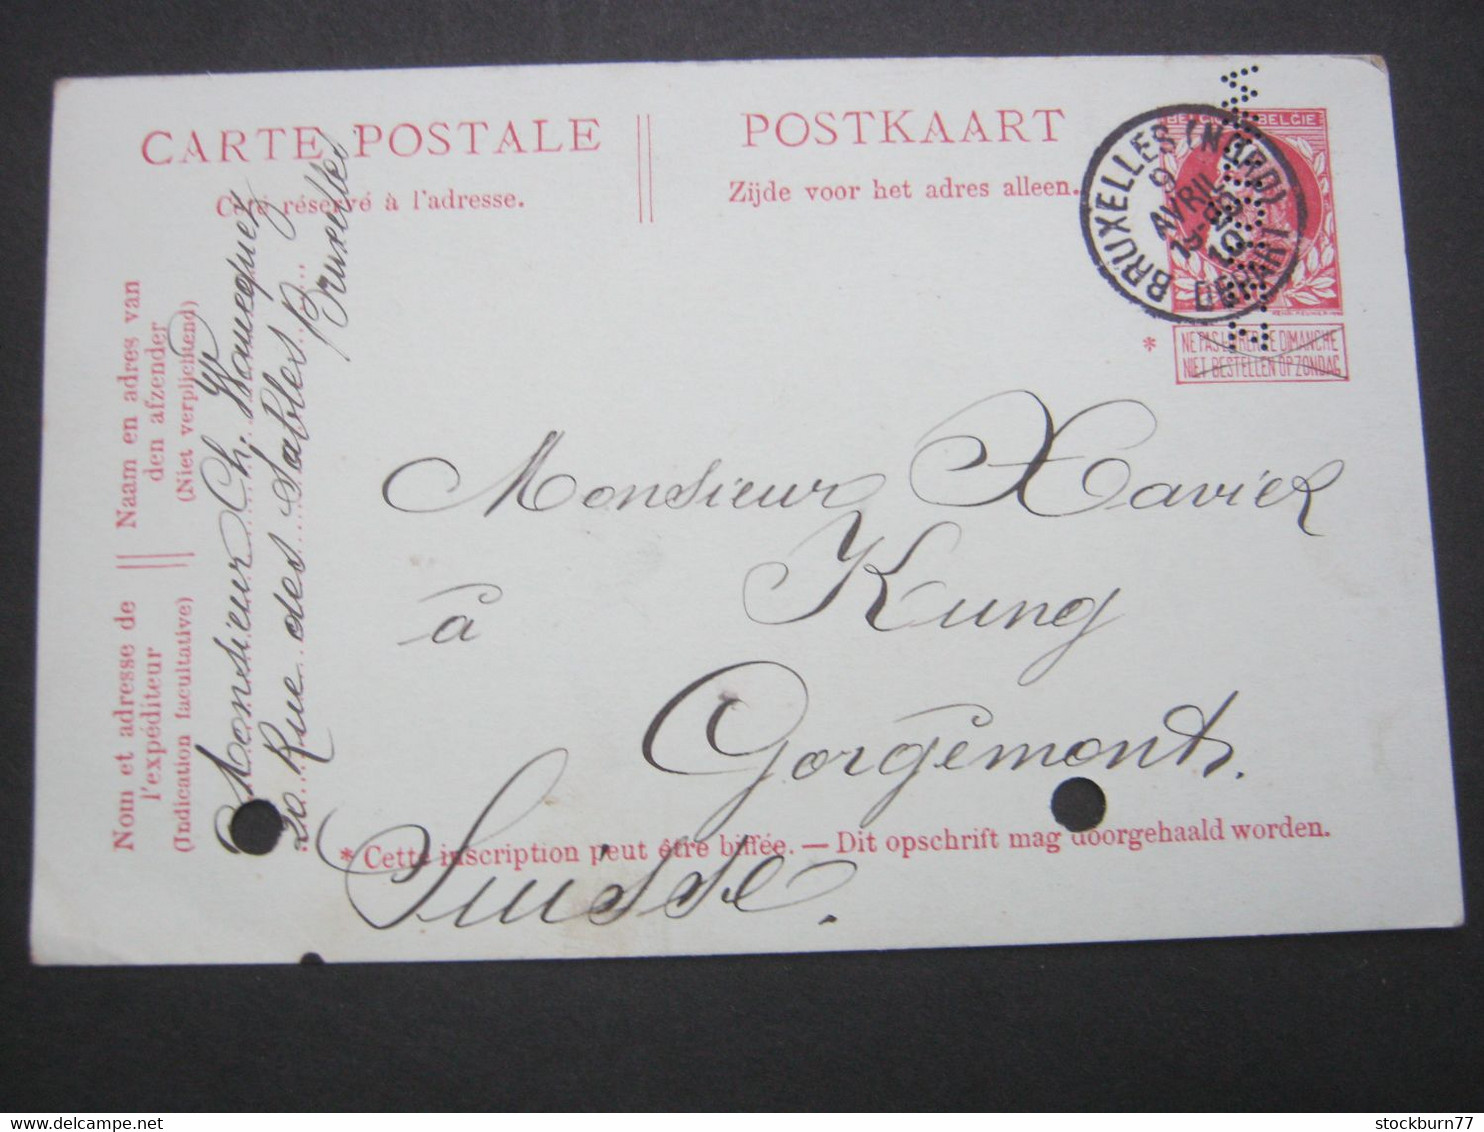 CARTE POSTALE
POSTKAART
Côté réservé à l'adresse.
Zijde voor het adres alleen.
BELGIQUE BELGIË
BRUXELLES (NORD)
9
AVRIL
10
DEPART
* NE PAS LIVRER LE DIMANCHE
NIET BESTELLEN OP ZONDAG
Naam en adres van
den afzender
(Niet verplichtend)
Nom et adresse de
l'expéditeur
(Indication facultative)
Monsieur Ch.
20 Rue des Sables
Bruxelles
Monsieur Xavier
Kung
à
Gorgémont.
Suisse.
* Cette inscription peut être biffée. — Dit opschrift mag doorgehaald worden.
stockburn77